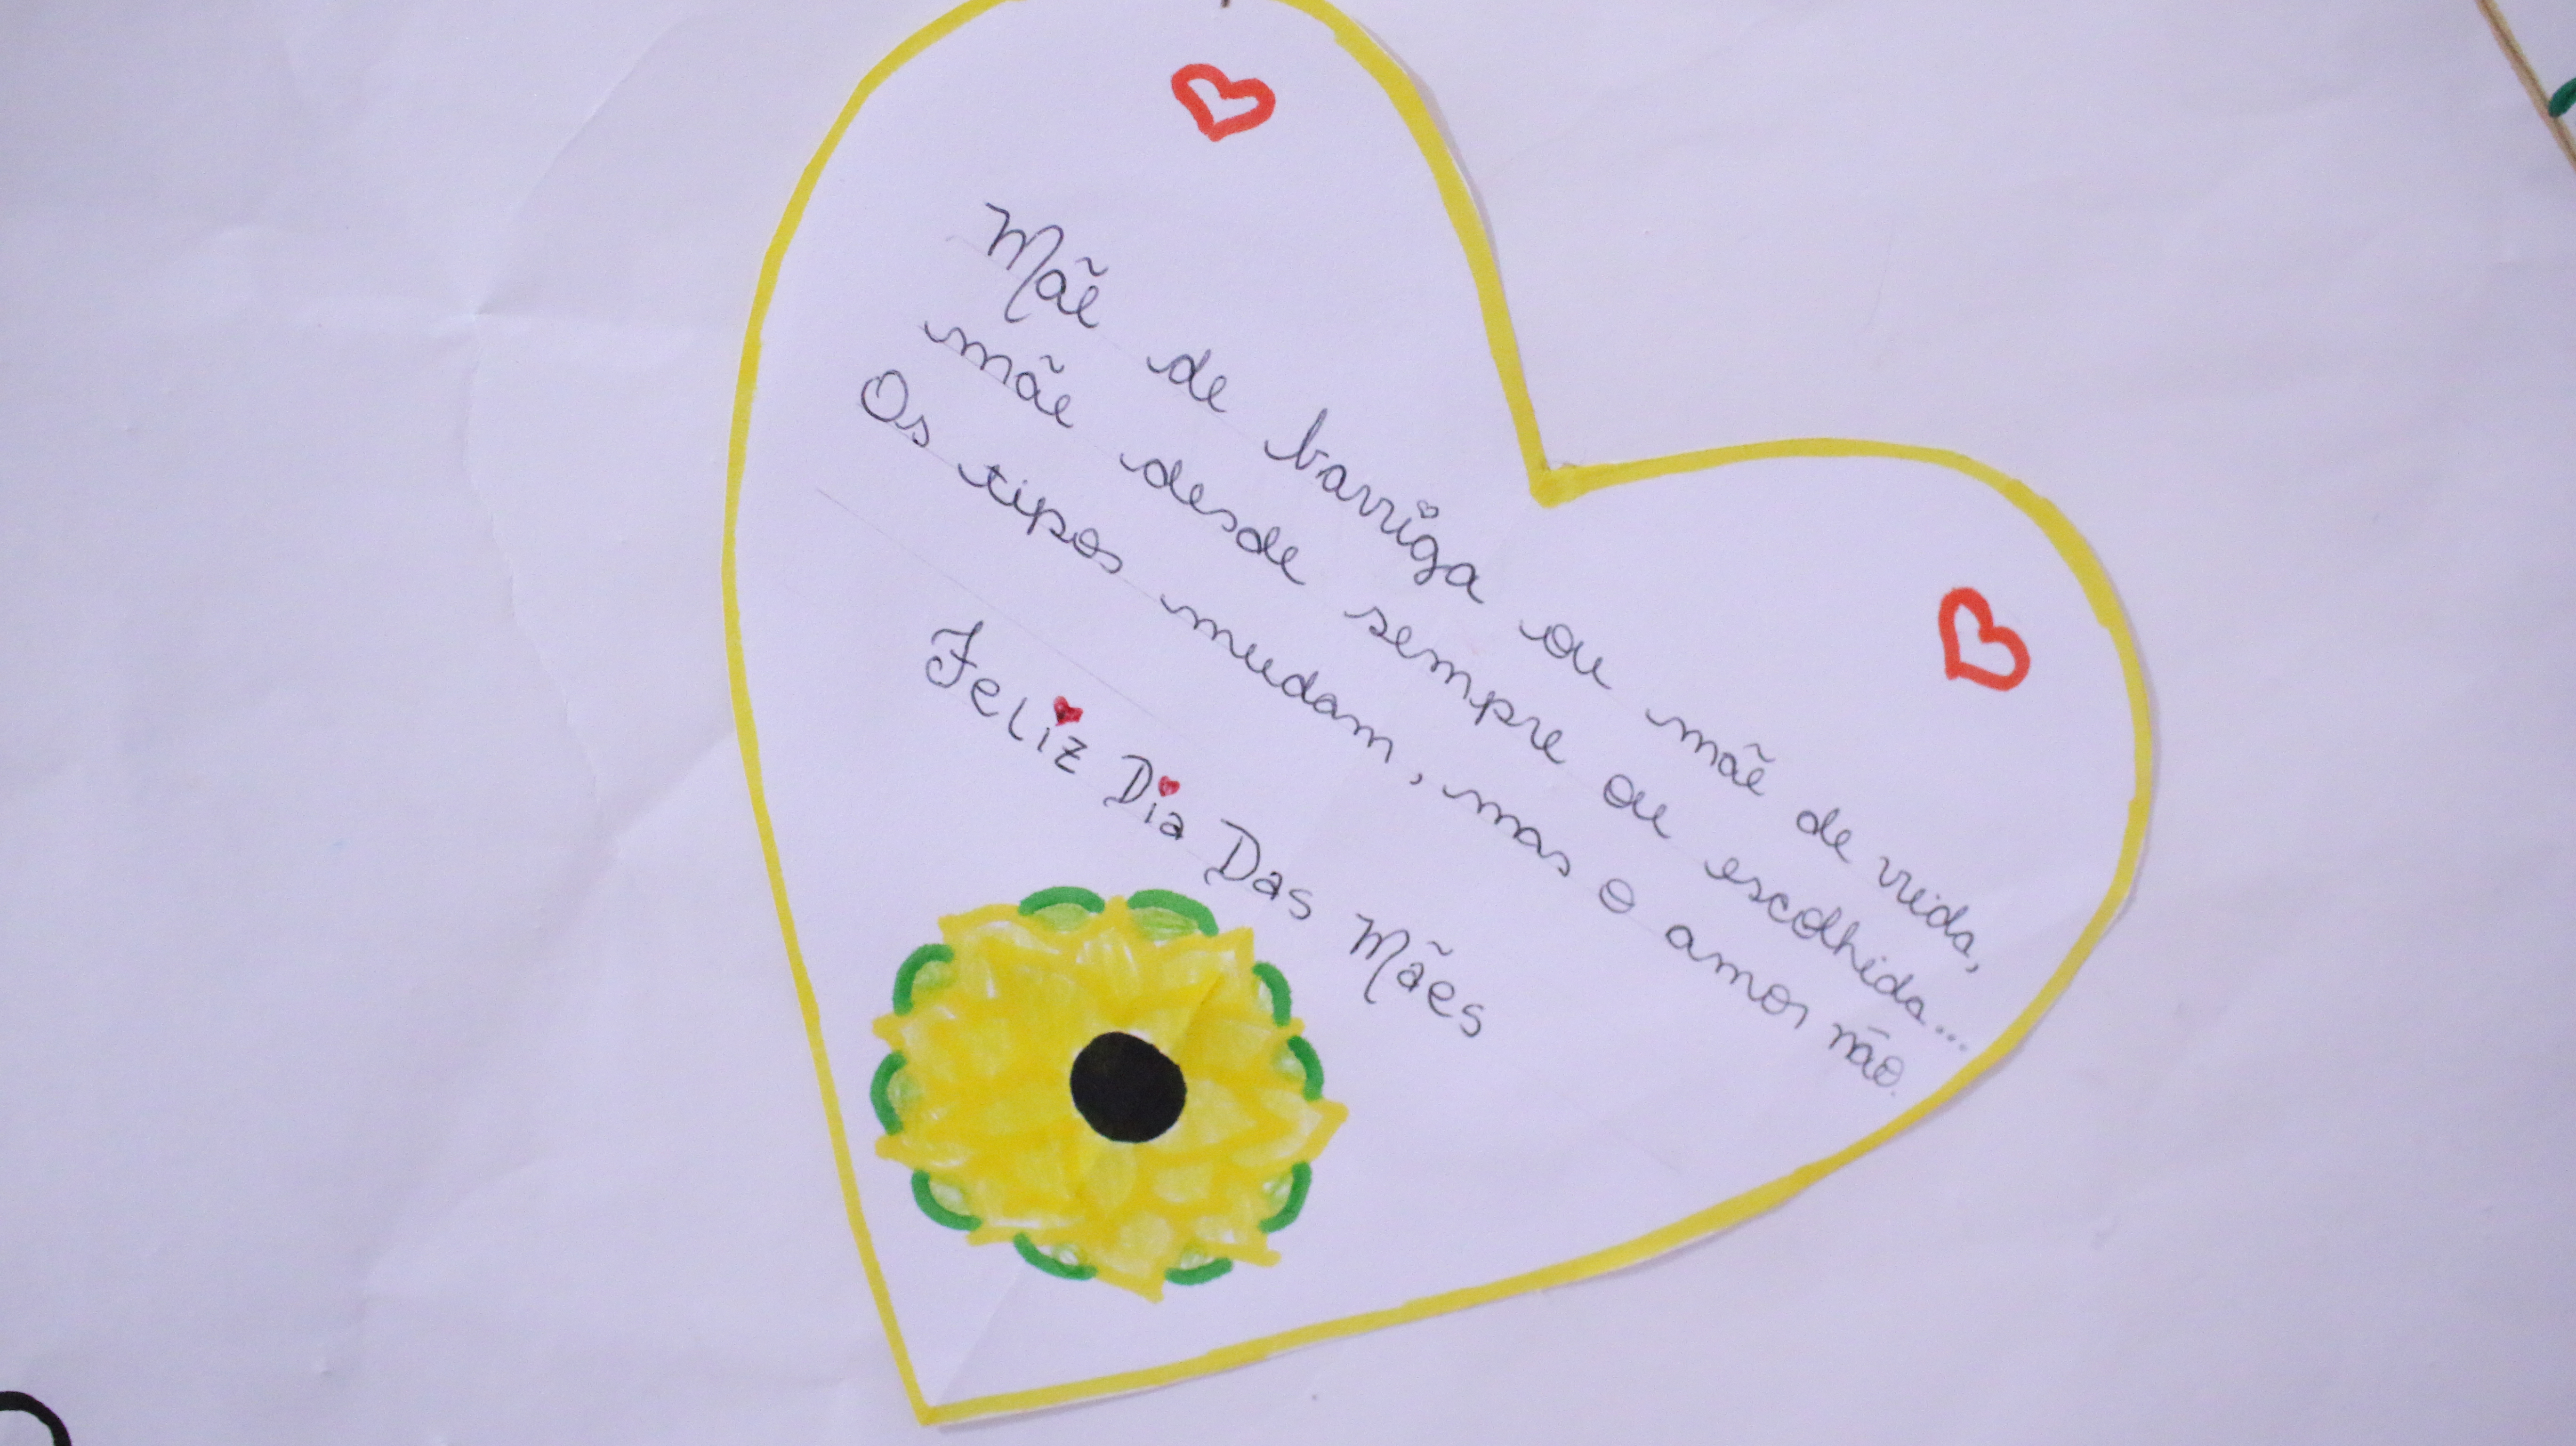 Mãe de barriga ou mãe de vida,
mãe desde sempre ou escolhida...
Os tipos mudam, mas o amor não.
Feliz Dia Das Mães